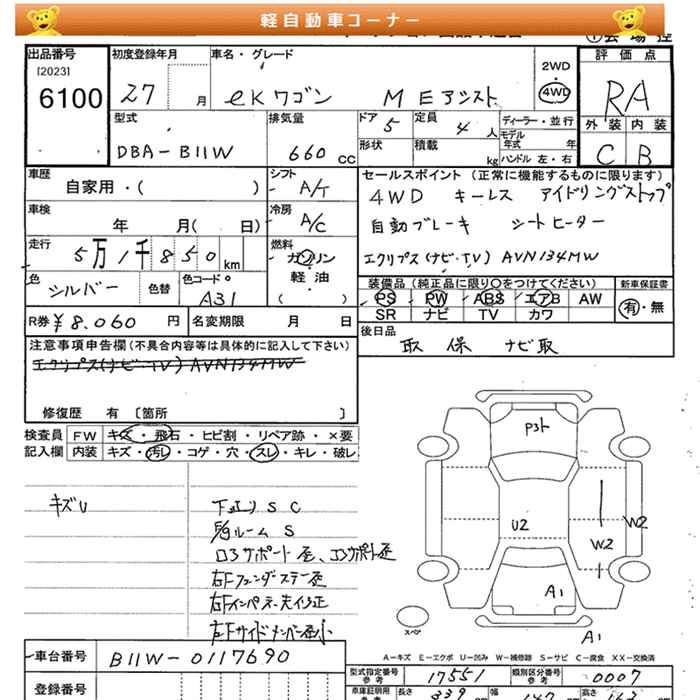 軽自動車コーナー
出品番号
[2023]
6100
初度登録年月
27 月
車名・グレード
eKワゴン M Eアシスト
2WD
4WD
評価点
RA
外装 内装
C B
型式
DBA-B11W
排気量
660 cc
ドア 5
定員 4 人
ディーラー・並行
モデル年式 年
形状
積載 kg
ハンドル 左・右
車歴
自家用・( )
シフト
A/T
車検
年 月( 日)
冷房
A/C
走行
5万1千850 km
燃料
ガソリン
軽油
( )
色
シルバー
色替
色コードNo
A31
R券 ¥8,060 円
名変期限 月 日
セールスポイント (正常に機能するものに限ります)
4WD キーレス アイドリングストップ
自動ブレーキ シートヒーター
エクリプス(ナビ・TV) AVN134MW
装備品 (純正品に限り○をつけてください)
PS PW ABS エアB AW
SR ナビ TV カワ
新車保証書
有・無
後日品
取 保 ナビ取
注意事項申告欄(不具合内容等は具体的に記入して下さい)
エクリプス(ナビ・TV) AVN134MW
修復歴 有 〔箇所 〕
検査員記入欄
FW キズ・飛石・ヒビ割・リペア跡・×要
内装 キズ・汚れ・コゲ・穴・スレ・キレ・破レ
キズU
下廻りSC
ルームS
コアサポート歪
右Fフェンダステー歪
右Fインパネ先修正
左Fサイドメンバー歪小
P3ト
U2
W2
W2
A1
A1
スペア
A-キズ E-エクボ U-凹み W-補修跡 S-サビ C-腐食 XX-交換済
車台番号
B11W-0117690
登録番号
型式指定番号
参考
17551
類別区分番号
参考
0007
車庫証明用
参考
長さ 339
幅 147
高さ